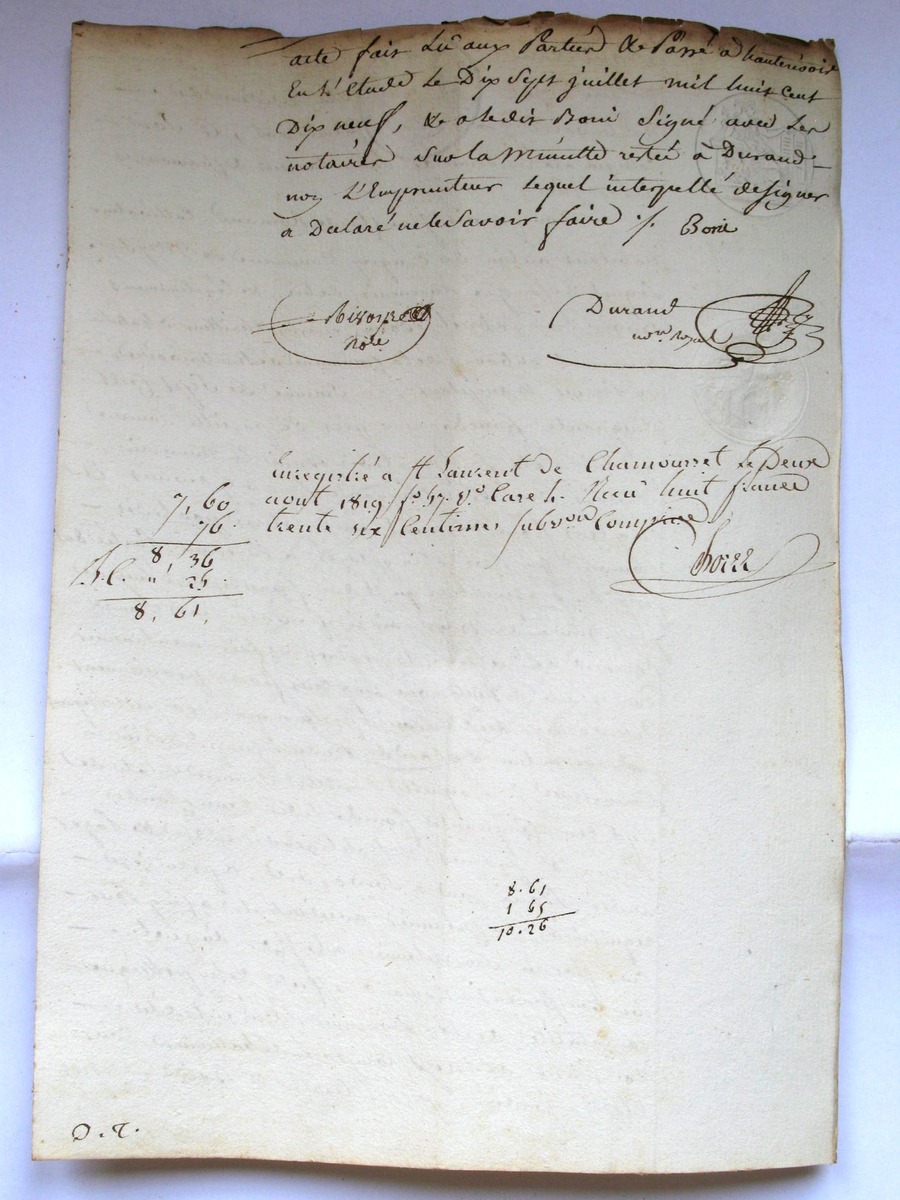 acte fait Lû aux Parties & Passé a hauterivoire
En L'étude Le Dix Sept juillet mil huit cent
Dix neuf, & a ledit Boni Signé avec Les
notaires Sur la Minutte restée à Durand
noy L'Emprunteur Lequel interpellé de signer
a Declaré ne le Savoir faire /. Boni
nore
Durand
nore Royal
Enregistré a St Laurent de Chamousset Le Deux
aout 1819 fo 57. vo Case 4. Recu huit francs
trente six Centimes Subvon Comprise
7, 60
76.
8, 36
" 25.
8, 61,
8. 61
1 65
10. 26